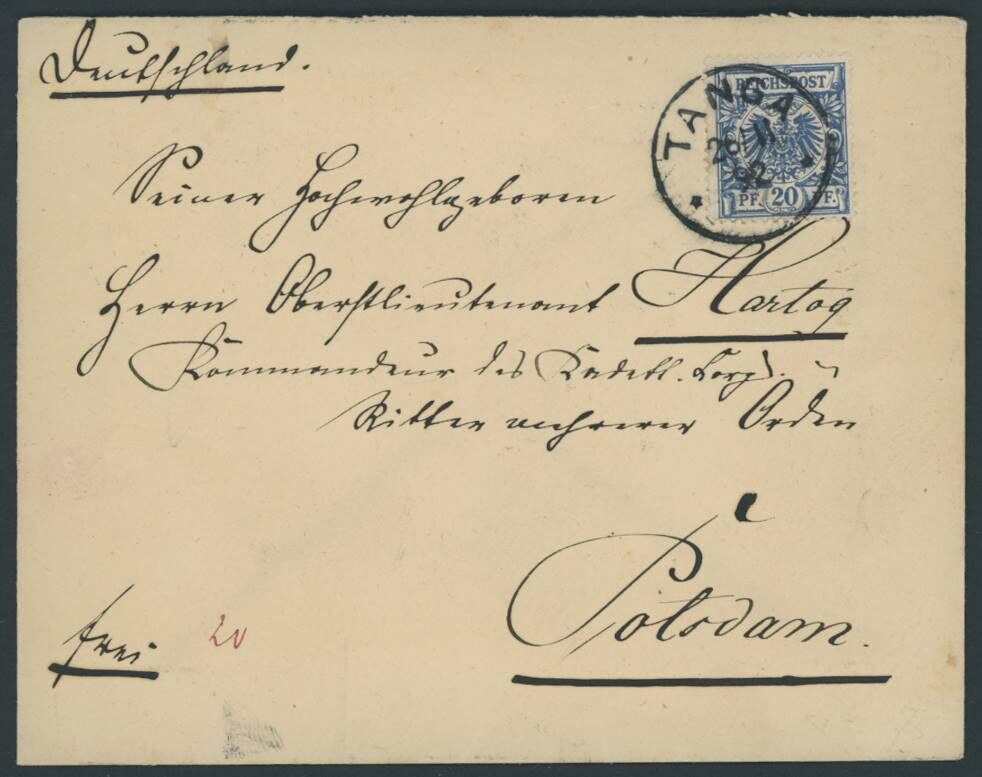 Deutschland.
TANGA
28/11
92
REICHSPOST
PF. 20 PF.
Seiner Hochwohlgeboren
Herrn Oberstlieutenant Hartog
Kommandeur des Kadett. Corps.
Ritter mehrerer Orden
Potsdam.
frei 20